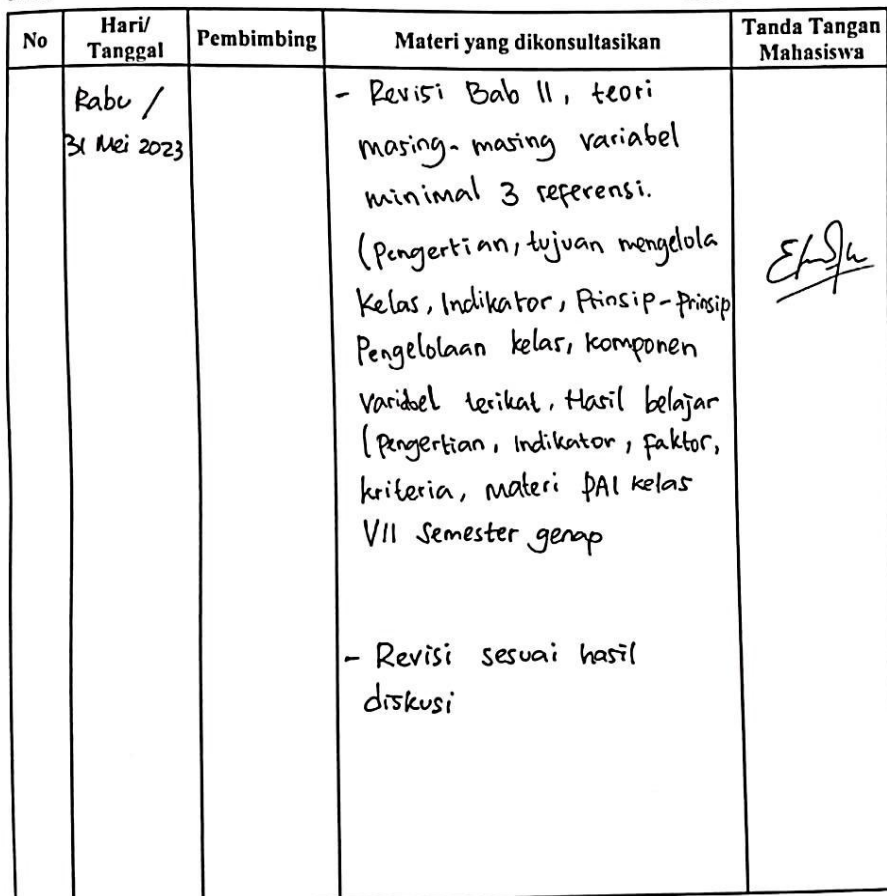 No
Hari/
Tanggal
Pembimbing
Materi yang dikonsultasikan
Tanda Tangan
Mahasiswa
Rabu /
31 Mei 2023
- Revisi Bab II, teori
masing-masing variabel
minimal 3 referensi.
(Pengertian, tujuan mengelola
Kelas, Indikator, Prinsip-Prinsip
Pengelolaan kelas, komponen
Varidbel terikat, Hasil belajar
(Pengertian, Indikator, faktor,
kriteria, materi PAI kelas
VII Semester genap
- Revisi sesuai hasil
diskusi